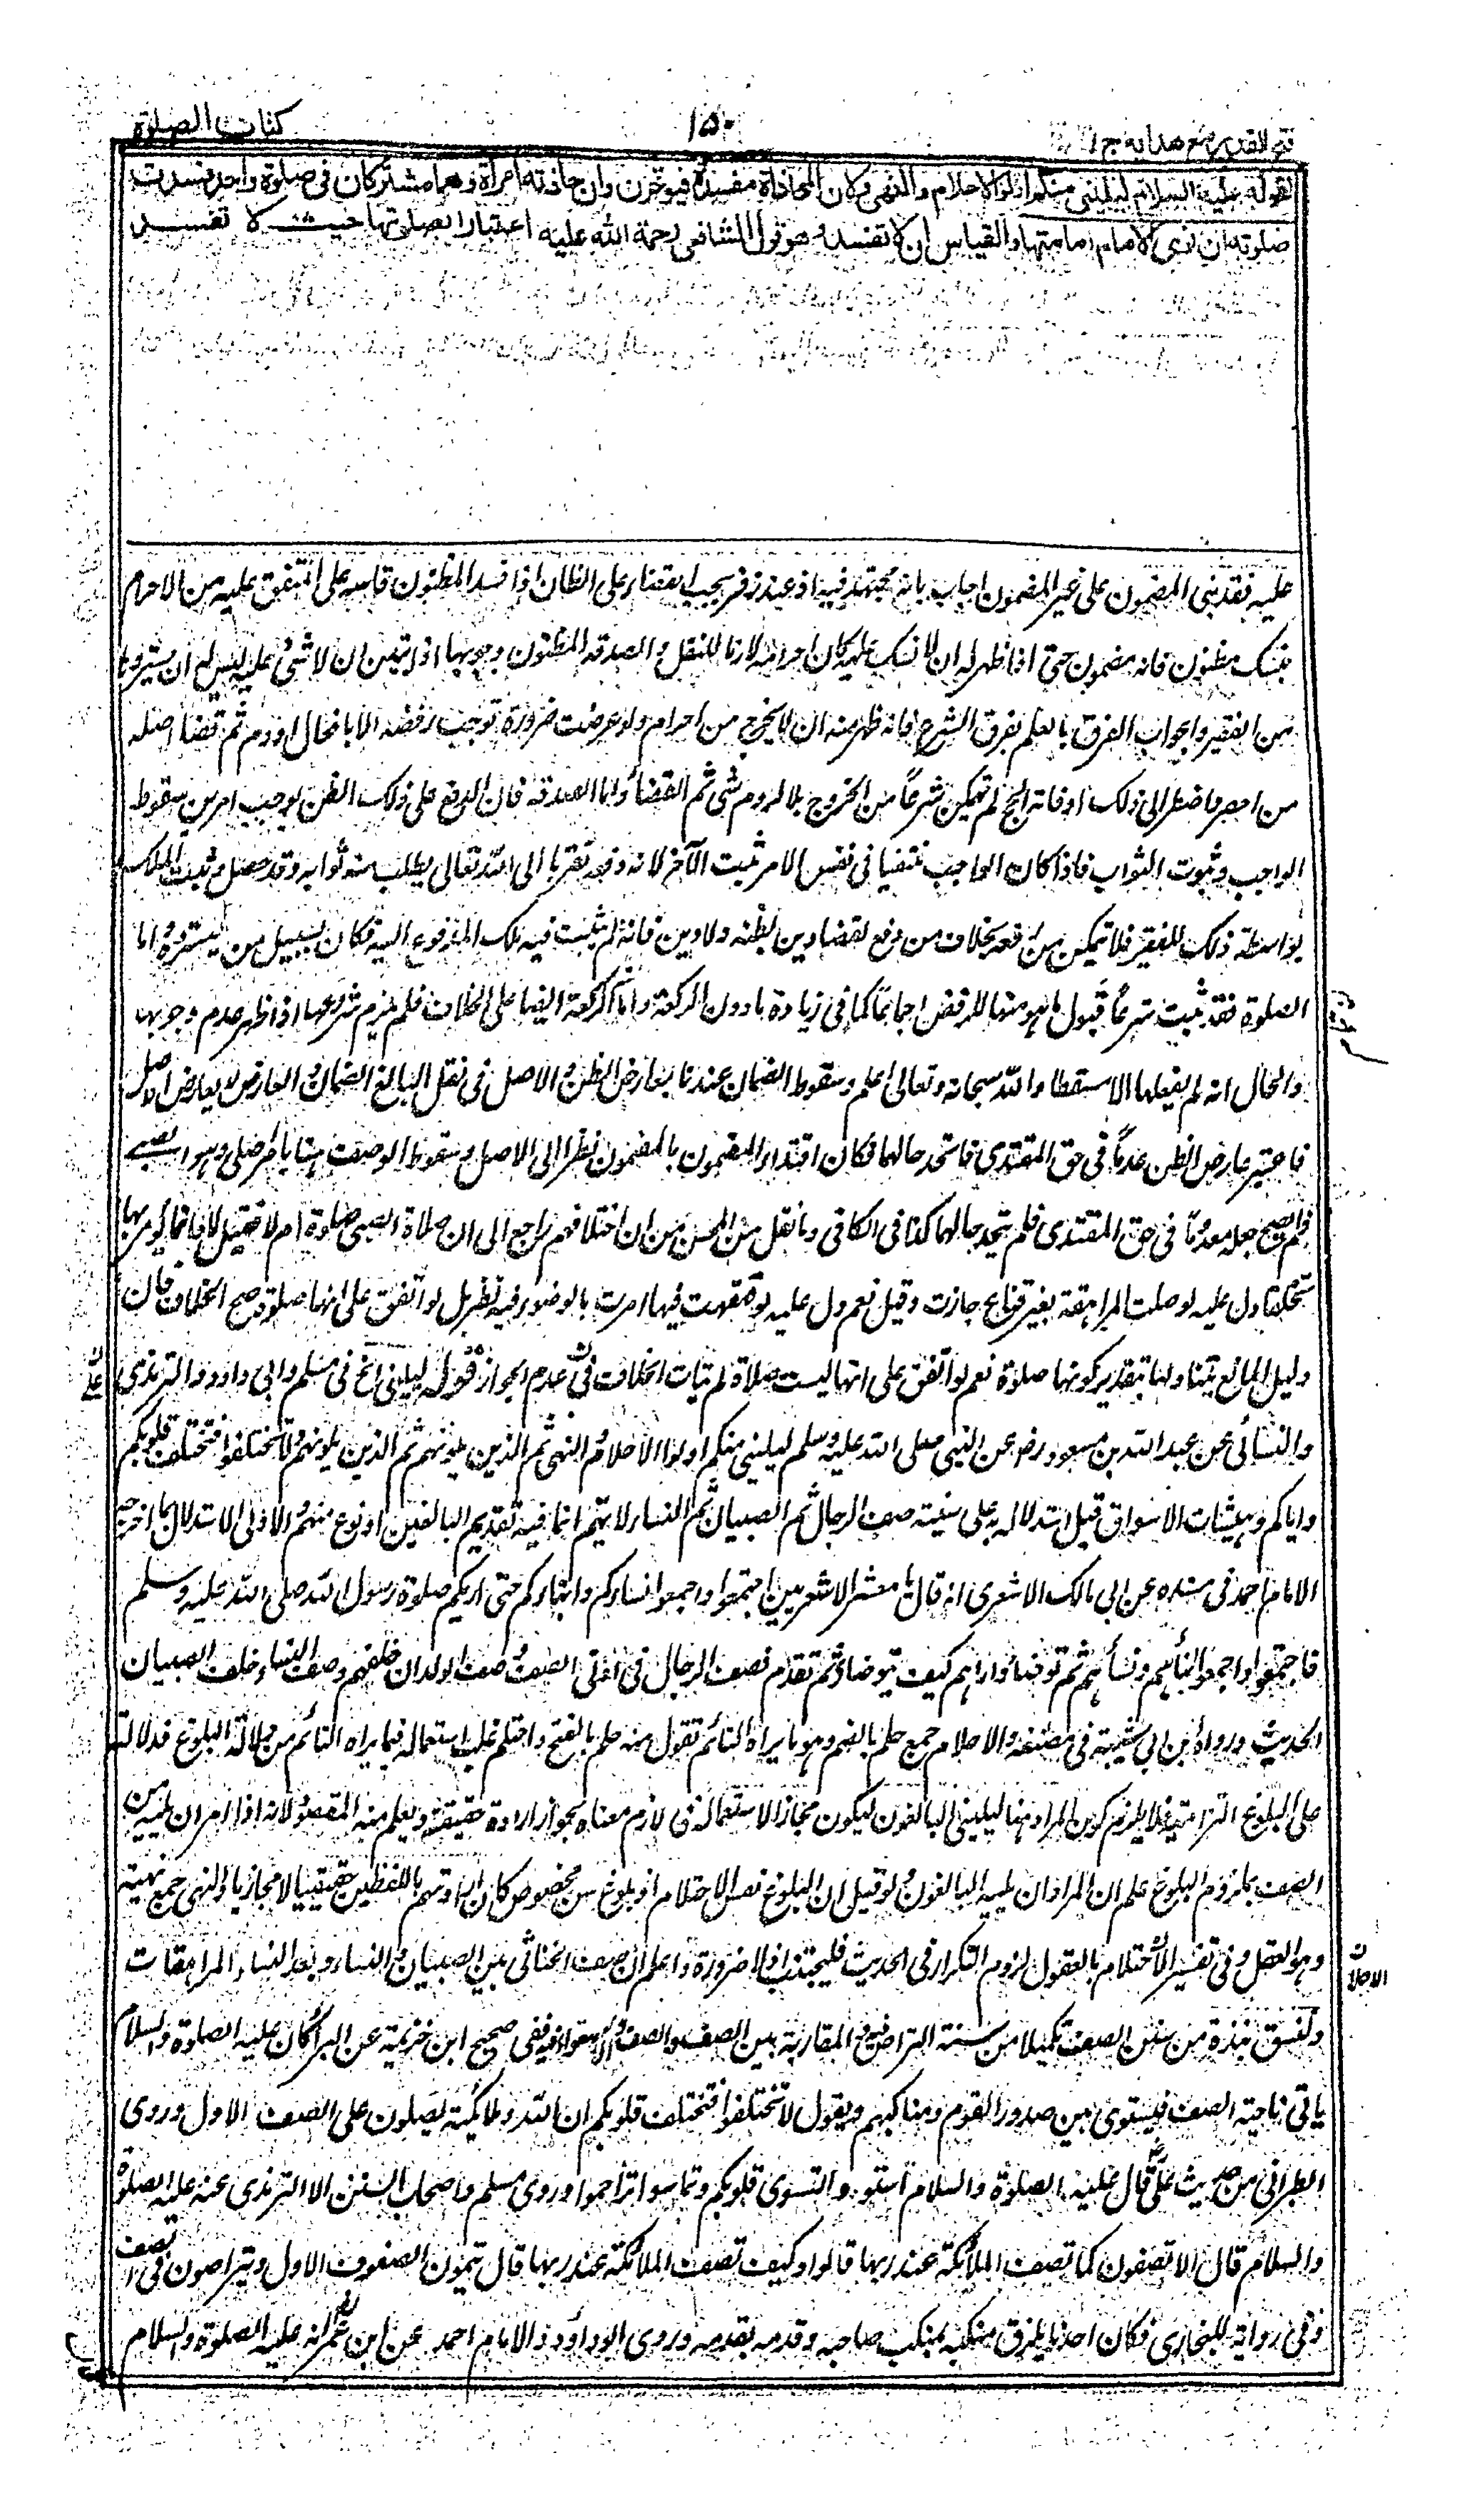 فتح القدير مع هدايه ج ١
١٥٠
كتاب الصلوة
لقوله عليه السلام ليلينى منكم اولوا الاحلام والنهى ولان المحاذاة مفسدة فيوخرن وان حاذته امرأة وهما مشتركان فى صلوة واحدة فسدت
صلوته ان نوى الامام امامتها والقياس ان لا تفسد وهو قول الشافعى رحمة الله عليه اعتبارا بصلوتها حيث لا تفسد
عليه فقد بنى المضمون على غير المضمون اجاب بانه مجتهد فيه اذ عند زفر يجب القضاء على الظان اذا فسد المظنون قاسه على المتفق عليه من الاحرام
بنسك مظنون فانه مضمون حتى اذا ظهر له ان لا نسك عليه كان احرامه لازما للنفل والصدقة المظنون وجوبها اذا تبين ان لا شئ عليه ليس له ان يستردها
من الفقير والجواب الفرق بالعلم بفرق الشرع فانه ظهر منه ان لا يخرج من احرام ولو عرضت ضرورة توجب رفضه الا بافعال او دم ثم قضاء اصله
من احصر فاضطر الى ذلك او فاته الحج لم تمكن شرعاً من الخروج بلا لزوم شئ ثم القضاء واما الصدقة فان الدفع على ذلك الظن يوجب امرين سقوط
الواجب وثبوت الثواب فاذا كان الواجب منتفيا فى نفس الامر ثبت الآخر لانه دفعه تقربا الى الله تعالى يطلب منه ثوابه وقد حصل وثبت الملك
بواسطة ذلك للفقير فلا يتمكن من رفعه بخلاف من دفع لقضاء دين يظنه ولا دين فانه لم يثبت فيه ملك المدفوع اليه فكان بسبيل من يسترده اما
الصلوة فقد ثبت شرعاً قبول ما هو منها للرفض اجماعا كما فى زيادة ما دون الركعة واما الركعة ايضا على الخلاف فلم يلزم شروعها اذا ظهر عدم وجوبها
والحال انه لم يفعلها الا مسقطا والله سبحانه وتعالى اعلم وسقوط الضمان عندنا بعارض الظن والاصل فى نفل البالغ الضمان والعارض لا يعارض الاصل
فاعتبر عارض الظن عدماً فى حق المقتدى فاتحد حالهما فكان اقتداء المضمون بالمضمون نظرا الى الاصل وسقوط الوصف هنا بامر اصلى وهو الصبى
فلم يصح جعله معدوما فى حق المقتدى فلم يتحد حالهما كذا فى الكافى وما نقل من المحسن من ان اختلافهم راجع الى ان صلاة الصبى صلوة ام لا فقيل لا وانما يؤمر بها
تخلقا دل عليه لو صلت المراهقة بغير قناع جازت وقيل نعم دل عليه لو قهقهت فيها امرت بالوضوء وفيه نظر بل لو اتفق على انها صلوة صح الخلاف فان
دليل المانع يتناولها بتقدير كونها صلوة نعم لو اتفق على انها ليست صلاة لم يتأت الخلاف فى عدم الجواز قوله ليلينى الخ فى مسلم وابى داود والترمذى
والنسائى عن عبد الله بن مسعود رض عن النبى صلى الله عليه وسلم ليلينى منكم اولوا الاحلام والنهى ثم الذين يلونهم ثم الذين يلونهم ولا تختلفوا فتختلف قلوبكم
واياكم وهيشات الاسواق قيل استدلاله به على سنية صف الرجال ثم الصبيان ثم النساء لا يتم انما فيه تقديم البالغين او نوع منهم والاولى الاستدلال بما اخرجه
الامام احمد فى مسنده عن ابى مالك الاشعرى انه قال يا معشر الاشعريين اجتمعوا واجمعوا نساءكم وابناءكم حتى اريكم صلوة رسول الله صلى الله عليه وسلم
فاجتمعوا واجمعوا ابناءهم ونساءهم ثم توضأ واراهم كيف يتوضأ ثم تقدم فصف الرجال فى ادنى الصف وصف الولدان خلفهم وصف النساء خلف الصبيان
الحديث ورواه ابن ابى شيبة فى مصنفه والاحلام جمع حلم بالضم وهو ما يراه النائم تقول منه حلم بالفتح واحتلم غلب استعماله فيما يراه النائم من دلالة البلوغ فدلالته
على البلوغ التزامية فلا يلزم كون المراد هنا ليلينى البالغون ليكون مجازا لاستعماله فى لازم معناه لجواز ارادة حقيقته ويعلم منه المقصود لانه اذا امر ان يليه من
الصف بلزوم البلوغ علم ان المراد ان يليه البالغون ولو قيل ان البلوغ نفس الاحتلام او بلوغ سن مخصوص كان ارادتهم باللفظين حقيقيا لا مجازيا والنهى جمع نهية
وهو العقل وفى تفسير الاحتلام بالعقول لزوم التكرار فى الحديث فليجتنب اذ لا ضرورة واعلم ان صف الخناثى بين الصبيان والنساء وبعد النساء المراهقات
الاحلام
ولنسق نبذة من سنن الصف تكميلا من سنته التراص فيه والمقاربة بين الصف والصف والاستواء فيه ففى صحيح ابن خزيمة عن البراء كان عليه الصلوة والسلام
ياتى ناحية الصف فيسوى بين صدور القوم ومناكبهم ويقول لا تختلفوا فتختلف قلوبكم ان الله وملائكته يصلون على الصف الاول وروى
الطبرانى من حديث على قال عليه الصلوة والسلام استووا تستوى قلوبكم وتماسوا تراحموا وروى مسلم واصحاب السنن الا الترمذى عنه عليه الصلوة
والسلام قال الا تصفون كما تصف الملائكة عند ربها قالوا وكيف تصف الملائكة عند ربها قال يتمون الصفوف الاول ويتراصون فى الصف
وفى رواية للبخارى فكان احدنا يلزق منكبه بمنكب صاحبه وقدمه بقدمه وروى ابو داؤد والامام احمد عن ابن عمر انه عليه الصلوة والسلام